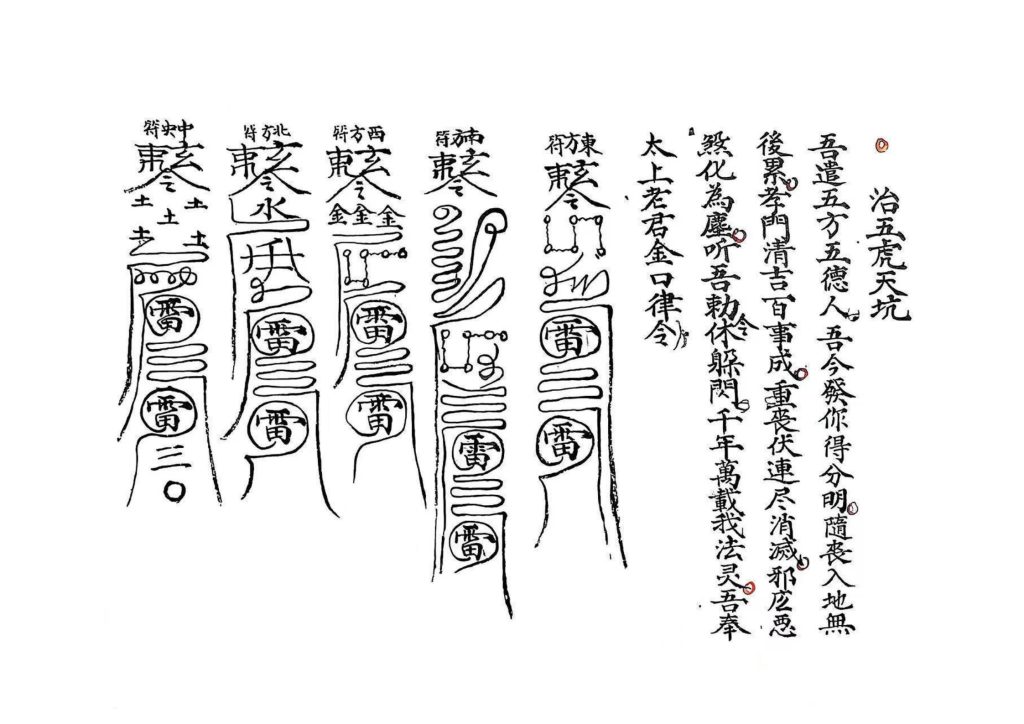 治五虎天坑
吾遣五方五德人吾今發你得分明隨喪入地無
後累孝門清吉百事成重喪伏連尽消滅邪惡
煞化為塵听吾勅令休躲閃千年萬載我法灵吾奉
太上老君金口律令
東方符
雷
雷
南方符
雷
雷
西方符
金金金
雷
雷
北方符
水
雷
雷
中央符
土土土土土
雷
雷
三